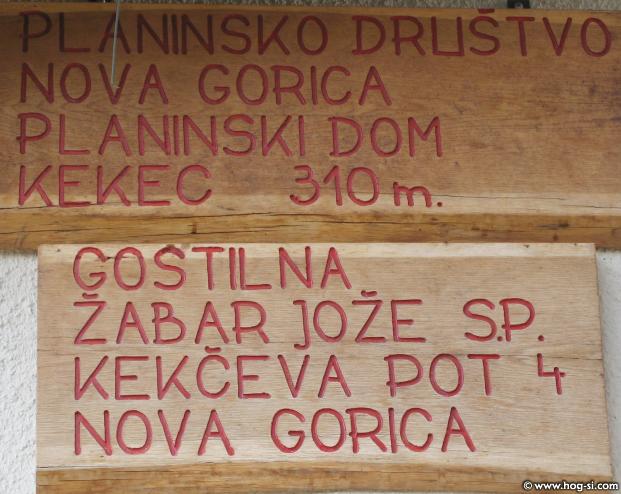 PLANINSKO DRUŠTVO
NOVA GORICA
PLANINSKI DOM
KEKEC 310 m.
GOSTILNA
ŽABAR JOŽE S.P.
KEKČEVA POT 4
NOVA GORICA
© www.hog-si.com